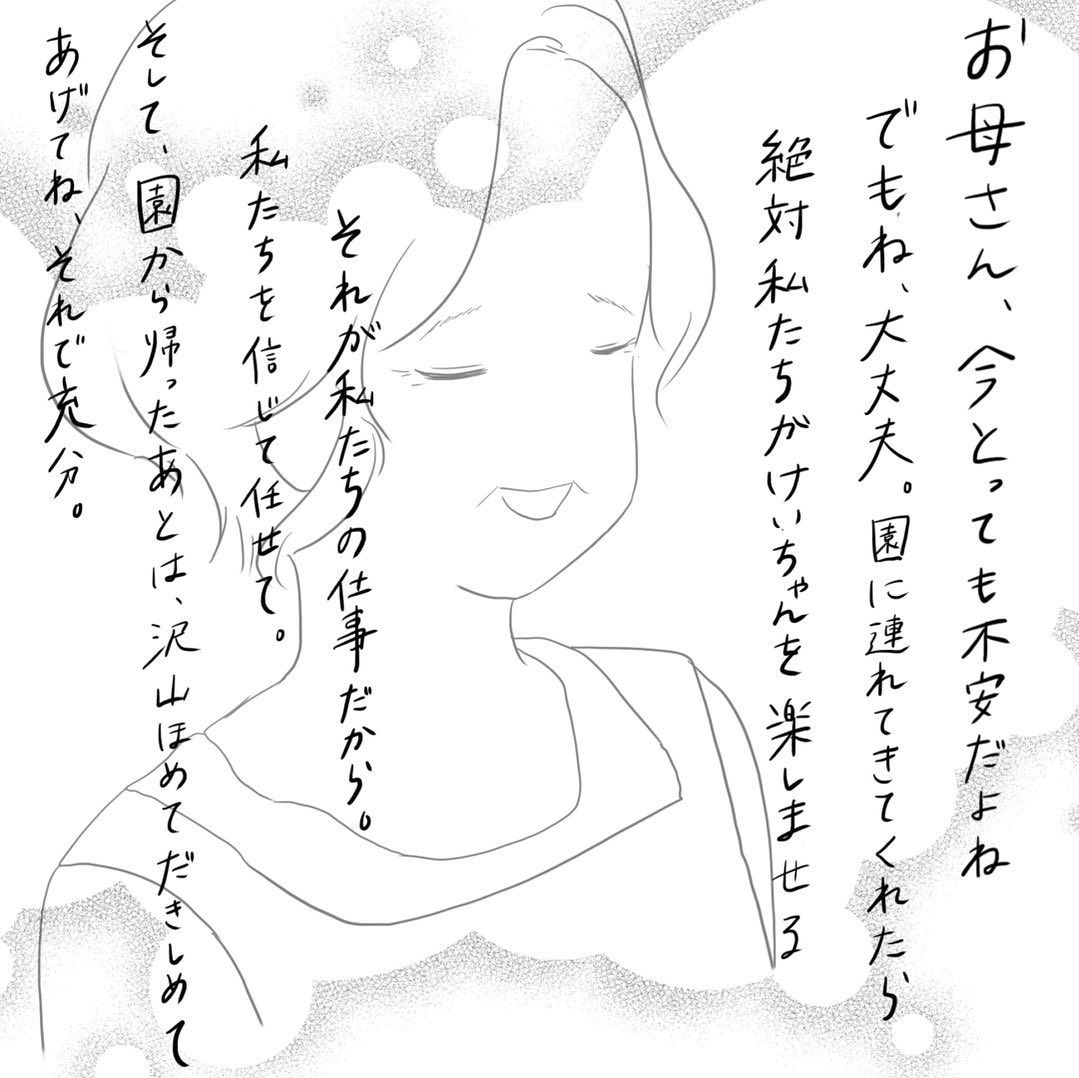 お母さん、今とっても不安だよね
でもね、大丈夫。園に連れてきてくれたら
絶対私たちがけいちゃんを楽しませる
それが私たちの仕事だから。
私たちを信じて任せて。
そして、園から帰ったあとは、沢山ほめてだきしめて
あげてね、それで充分。